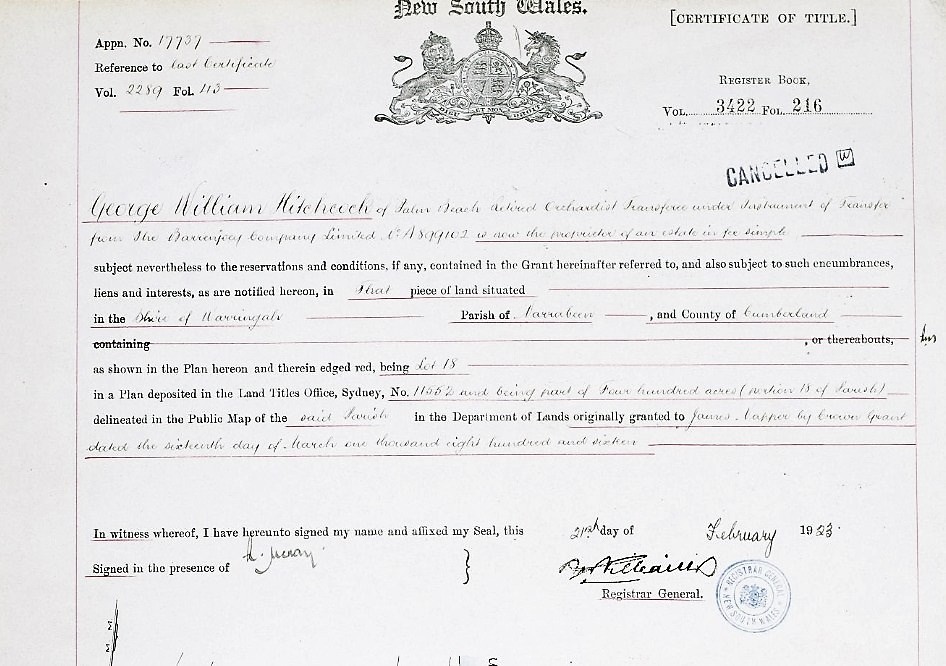 New South Wales.
[CERTIFICATE OF TITLE.]
Appn. No. 17737
Reference to Last Certificate
Vol. 2289 Fol. 113
REGISTER BOOK,
VOL. 3422 FOL. 216
CANCELLED
George William Hitchcock of Palm Beach retired Orchardist Transferee under Instrument of Transfer
from The Barrenjoey Company Limited No A899102 is now the proprietor of an estate in fee simple
subject nevertheless to the reservations and conditions, if any, contained in the Grant hereinafter referred to, and also subject to such encumbrances,
liens and interests, as are notified hereon, in That piece of land situated
in the Shire of Warringah Parish of Narrabeen , and County of Cumberland
containing , or thereabouts,
as shown in the Plan hereon and therein edged red, being Lot 18
in a Plan deposited in the Land Titles Office, Sydney, No. 11552 and being part of Four hundred acres (portion 18 of Parish)
delineated in the Public Map of the said Parish in the Department of Lands originally granted to James Napper by Crown Grant
dated the sixteenth day of March one thousand eight hundred and sixteen
In witness whereof, I have hereunto signed my name and affixed my Seal, this 21st day of February 1923
Signed in the presence of
Registrar General.
REGISTRAR GENERAL NEW SOUTH WALES